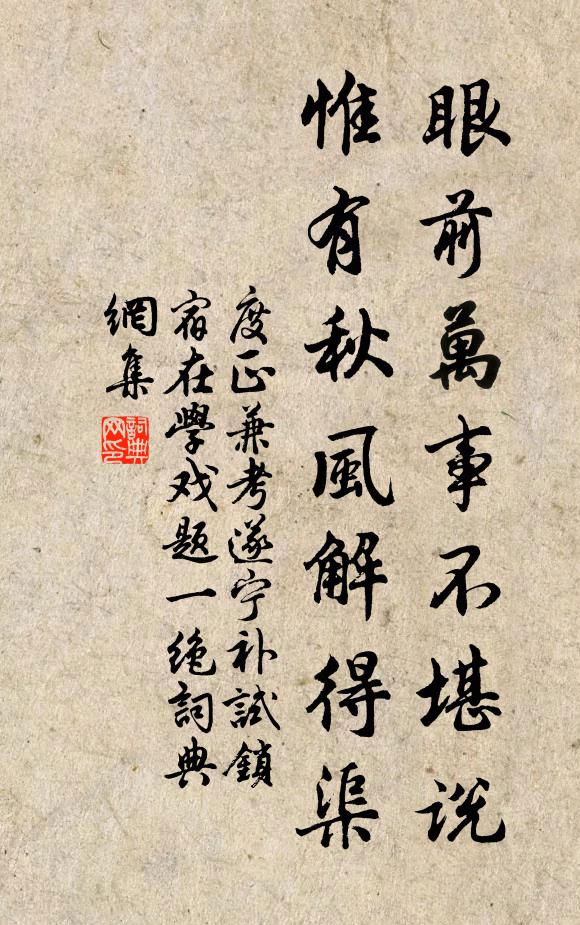 眼前萬事不堪說
惟有秋風解得渠
度正兼考遂宁补試鎖
宿在學戏题一绝詞典
網集
詞典
网印